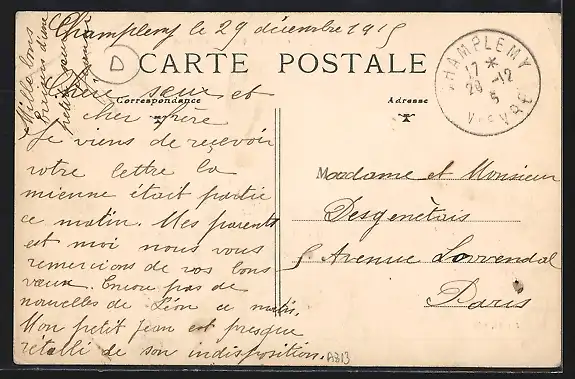 Champlemy le 29 décembre 1915
Mille bons
baisers d'une
petite sœur
D
CARTE POSTALE
Correspondance
Adresse
CHAMPLEMY
17 *
29 -12
5
NIEVRE
Chère sœur et
cher frère
Je viens de recevoir
votre lettre la
mienne était partie
ce matin. Mes parents
est moi nous vous
remercions de vos bons
vœux. Encore pas de
nouvelles de Léon ce matin.
Mon petit Jean est presque
rétabli de son indisposition.
Madame et Monsieur
Desgenétais
5 Avenue Lowendal
Paris
A313